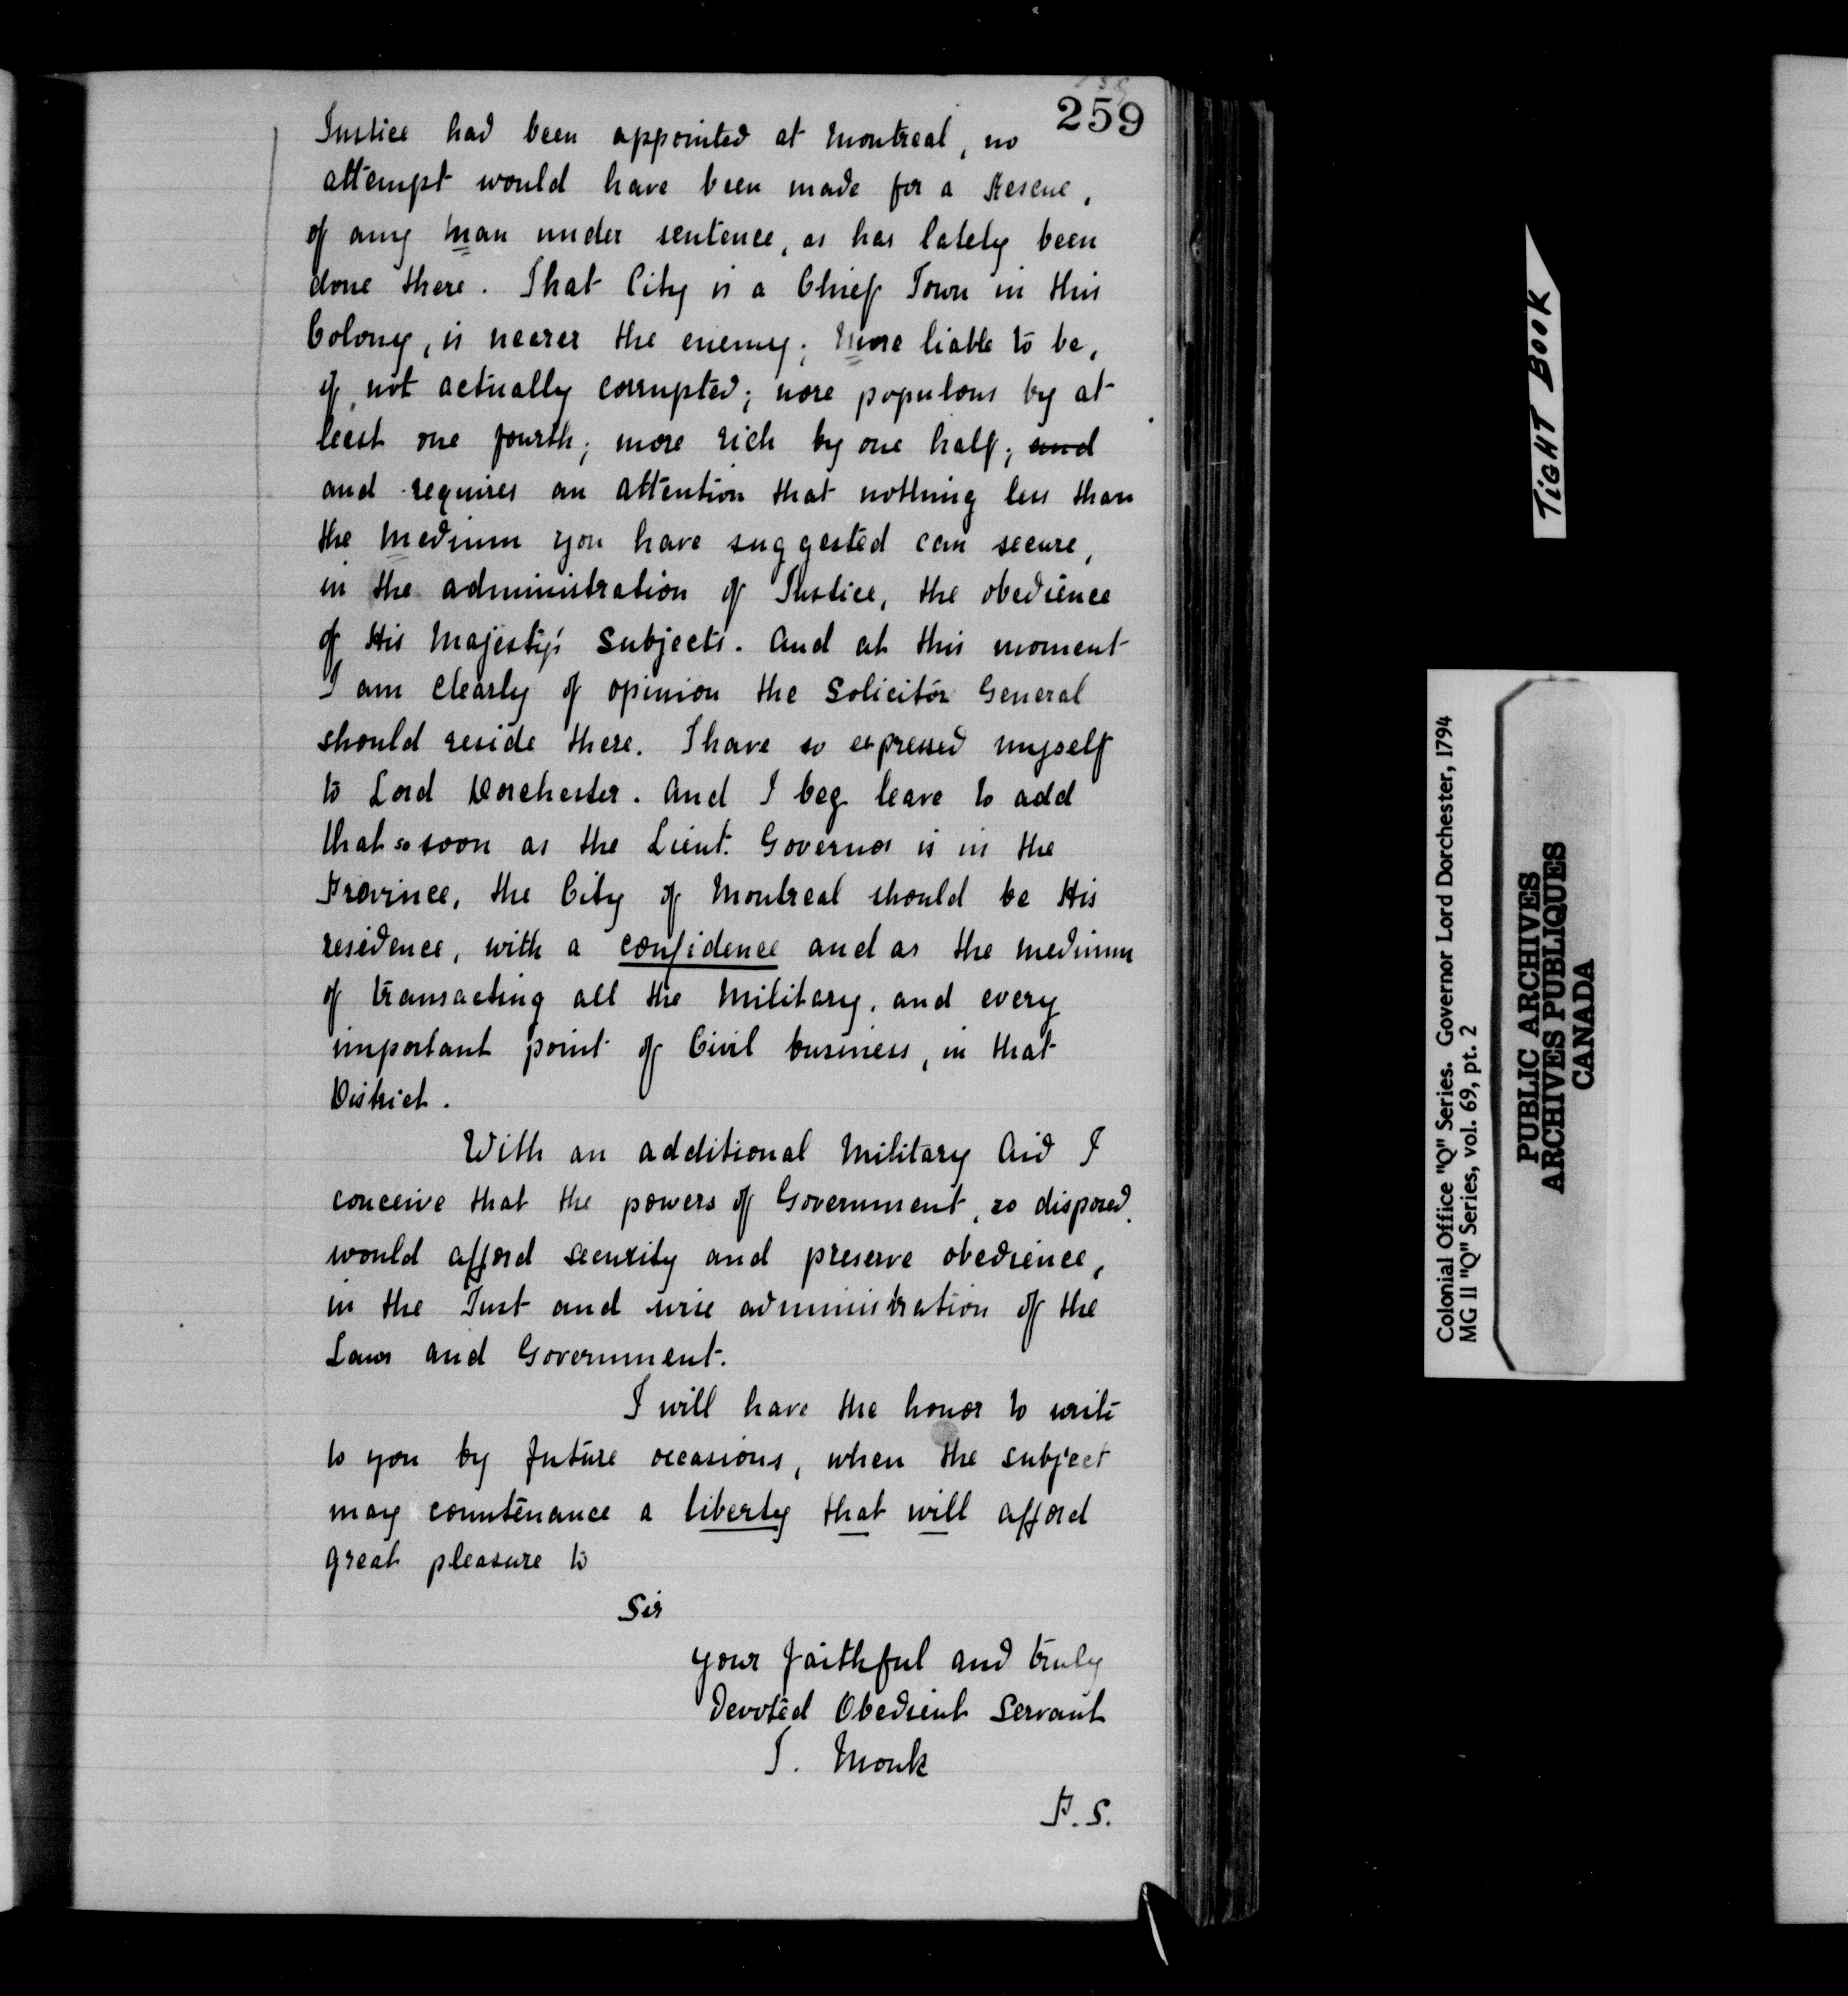 259
Justice had been appointed at Montreal, no
attempt would have been made for a Rescue,
of any Man under sentence, as has lately been
done there. That City is a Chief Town in this
Colony, is nearer the enemy; More liable to be,
if not actually corrupted; more populous by at
least one fourth; more rich by one half; and
and requires an attention that nothing less than
the Medium you have suggested can secure,
in the administration of Justice, the obedience
of His Majesty's Subjects. And at this moment
I am clearly of opinion the Solicitor General
should reside there. I have so expressed myself
to Lord Dorchester. And I beg leave to add
that so soon as the Lieut. Governor is in the
Province, the City of Montreal should be His
residence, with a confidence and as the medium
of transacting all the Military, and every
important point of Civil business, in that
District.
With an additional Military Aid I
conceive that the powers of Government, so disposed,
would afford security and preserve obedience,
in the Just and wise administration of the
Laws and Government.
I will have the honor to write
to you by future occasions, when the subject
may countenance a liberty that will afford
great pleasure to
Sir
your faithful and truly
Devoted Obedient Servant
J. Monk
P.S.
TIGHT BOOK
Colonial Office "Q" Series. Governor Lord Dorchester, 1794
MG 11 "Q" Series, vol. 69, pt. 2
PUBLIC ARCHIVES
ARCHIVES PUBLIQUES
CANADA